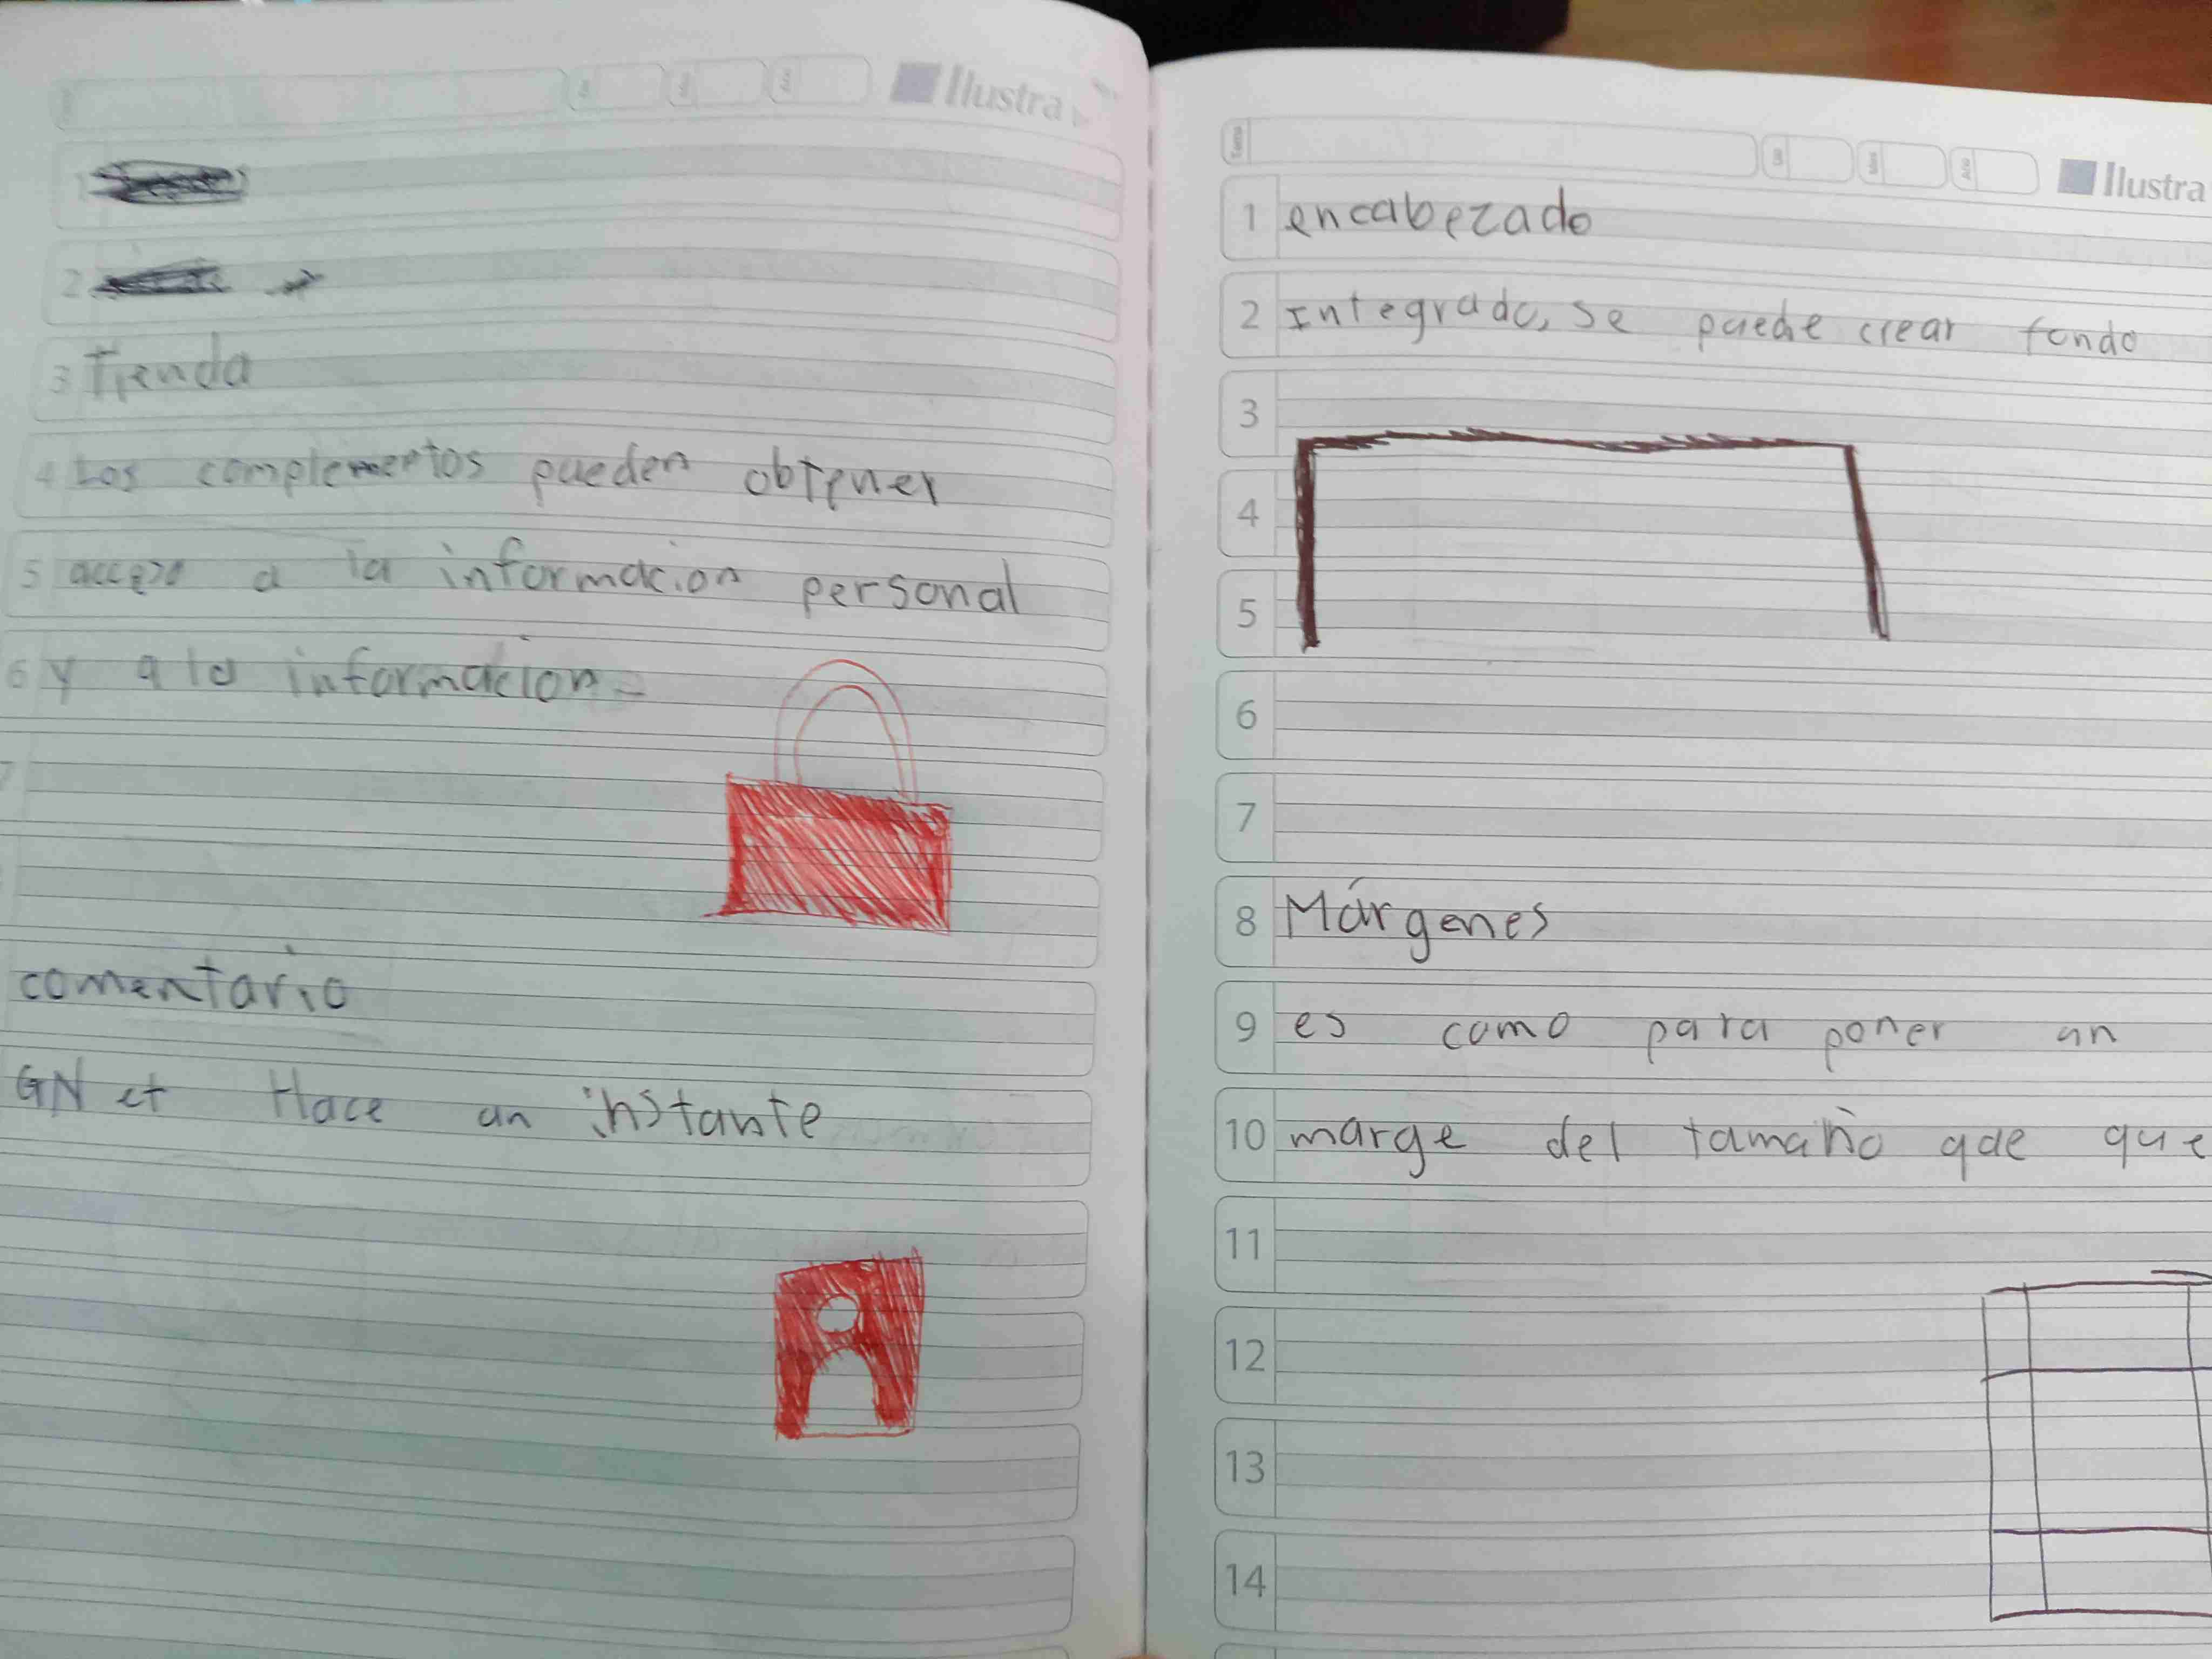 Ilustra
3 Tienda
4 Los complementos pueden obtener
5 acceso a la informacion personal
6 y a la informacion
comentario
GN et Hace un instante
Ilustra
1 encabezado
2 Integrado, se puede crear fondo
3
4
5
6
7
8 Márgenes
9 es como para poner un
10 marge del tamaño que que
11
12
13
14